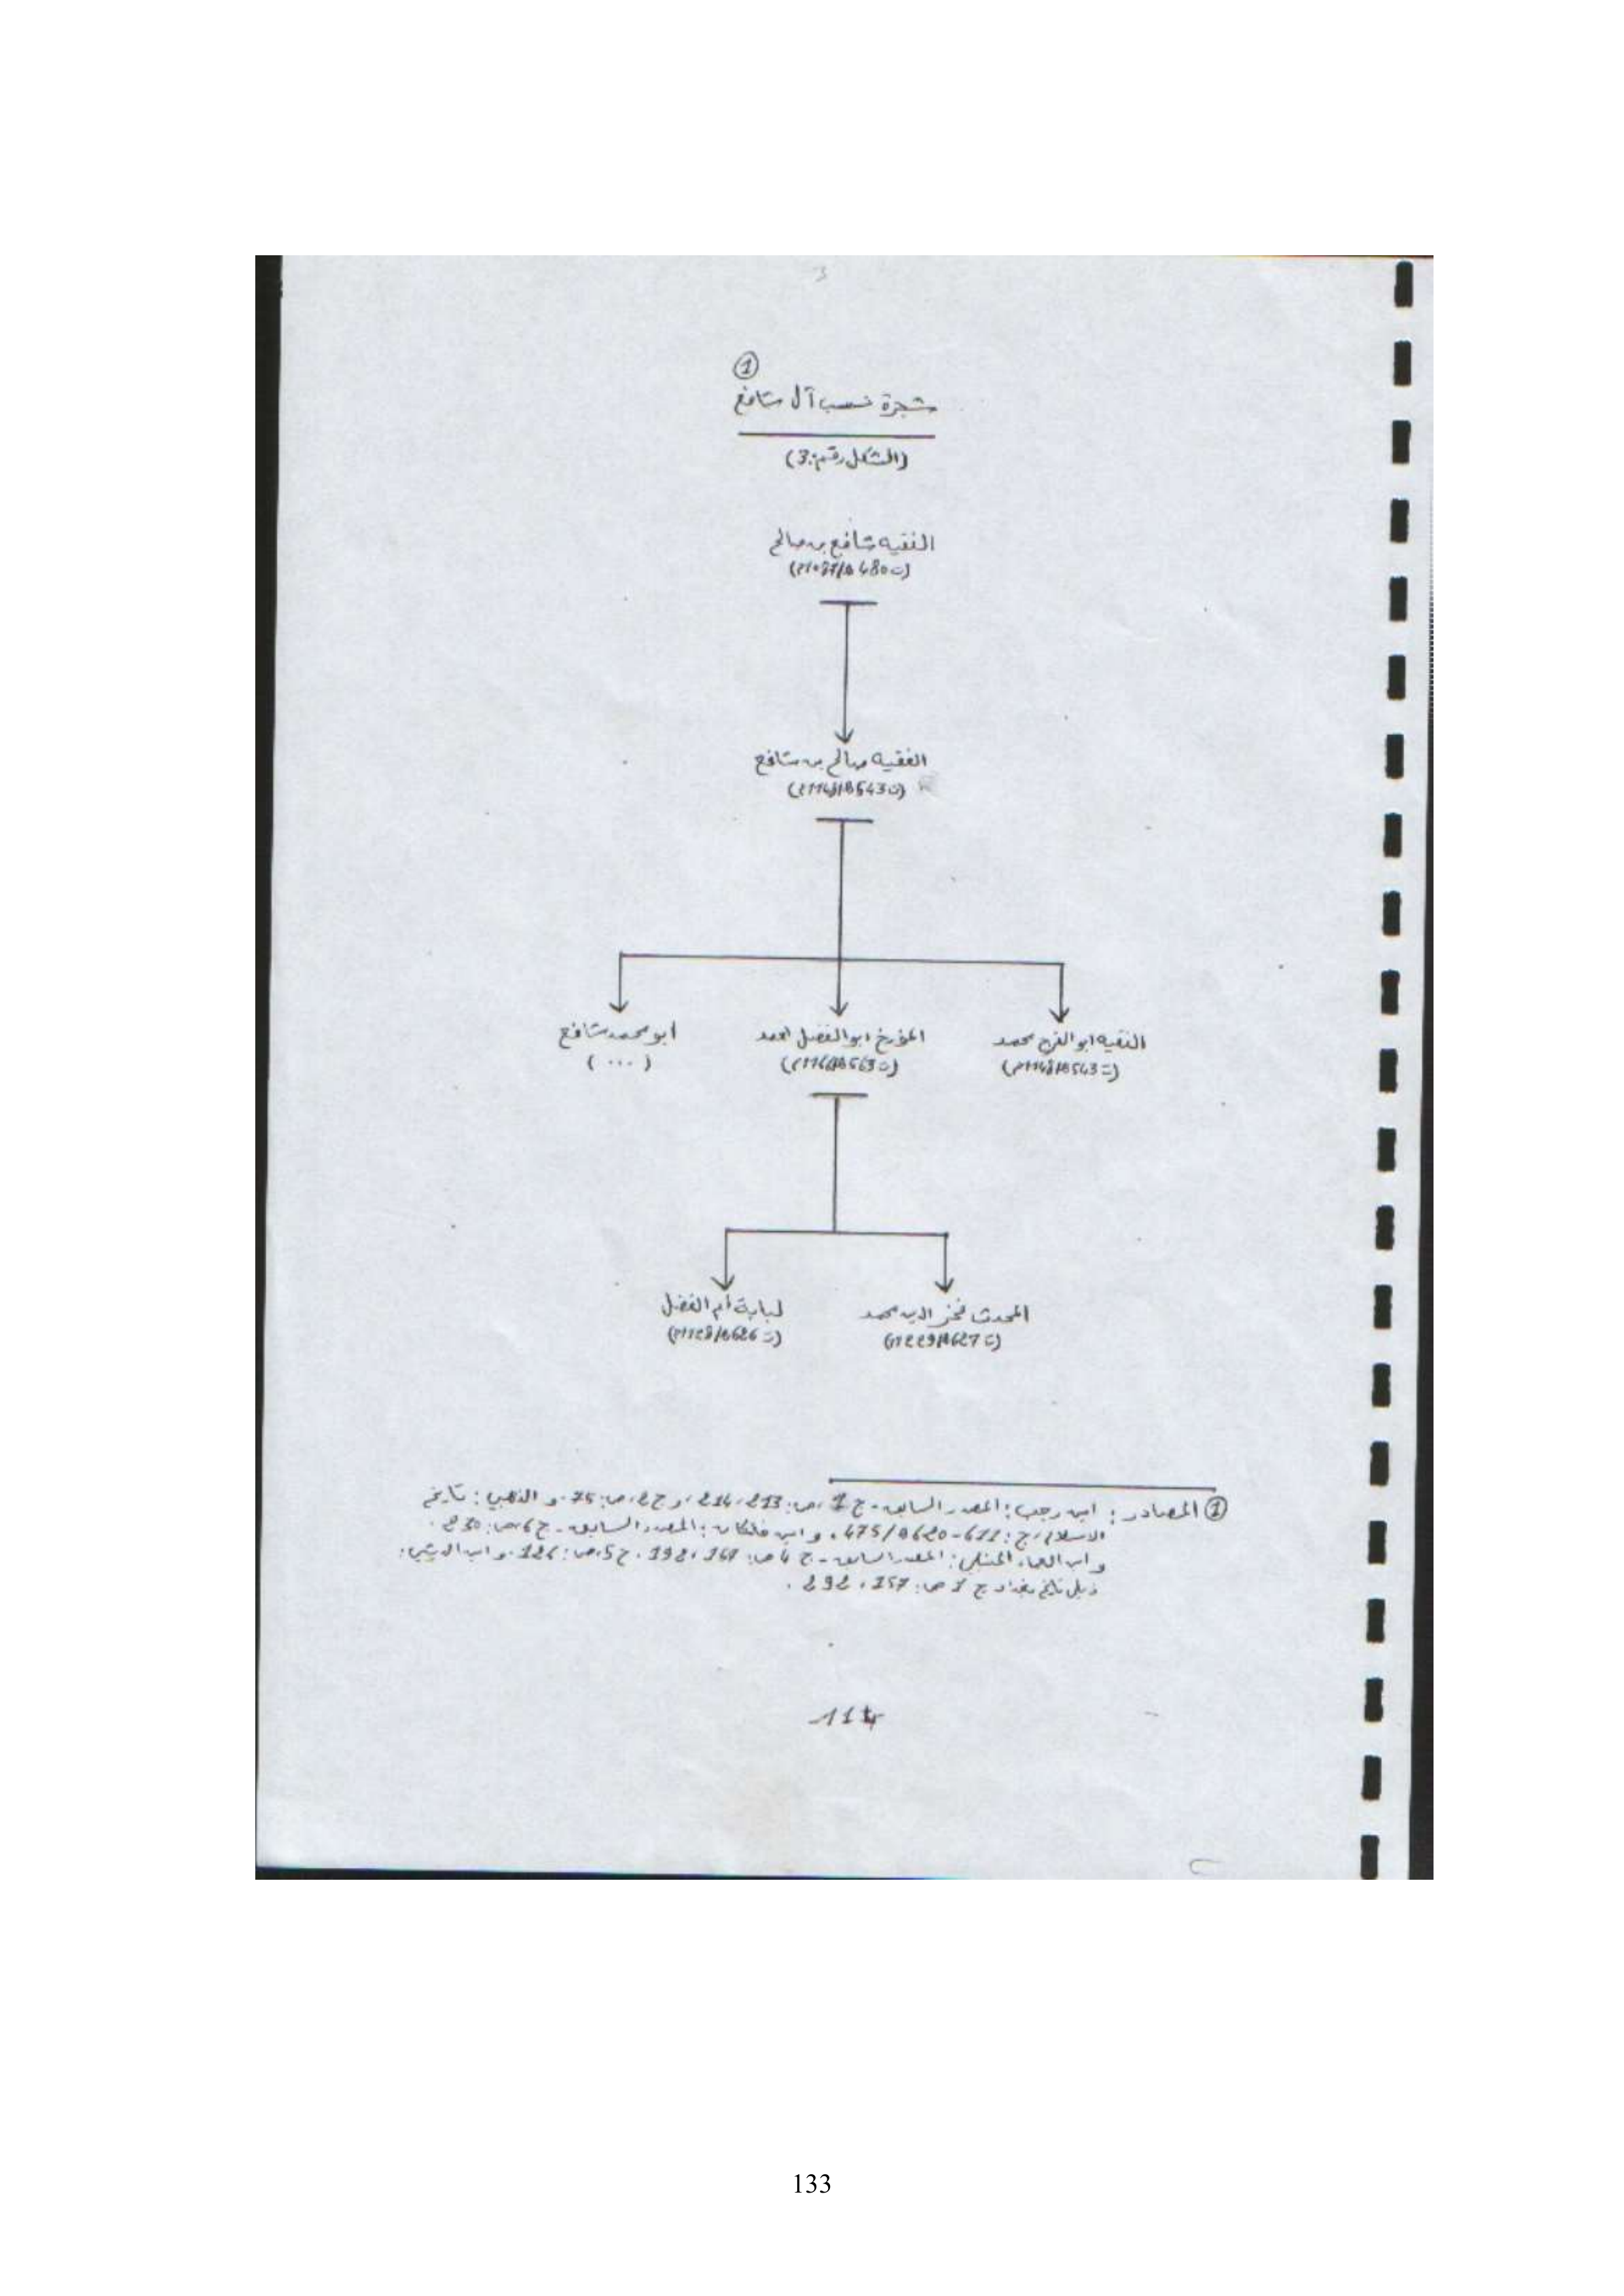 3
①
شجرة نسب آل شافع
(الشكل رقم:3)
الفقيه شافع بن صالح
(ت480ه/1087م)
الفقيه صالح بن شافع
(ت543ه/1148م)
الفقيه ابو الفرج محمد
(ت543ه/1148م)
المؤرخ ابو الفضل احمد
(ت565ه/م)
أبو محمد شافع
(...)
المحدث فخر الدين محمد
(ت627ه/1229م)
لبابة أم الفضل
(ت626ه/م)
① المصادر: ابن رجب: المصدر السابق- ج1، ص: 213، 214، و ج2، ص: 75. و الذهبي: تاريخ
الاسلام، ج: 611-620ه/475. و ابن خلكان: المصدر السابق- ج6، ص: 230.
و ابن العماد الحنبلي: المصدر السابق- ج4 ص: 192. ج5، ص: . و ابن الدبيثي:
ذيل تاريخ بغداد ج1 ص: 157، 292.
114
133